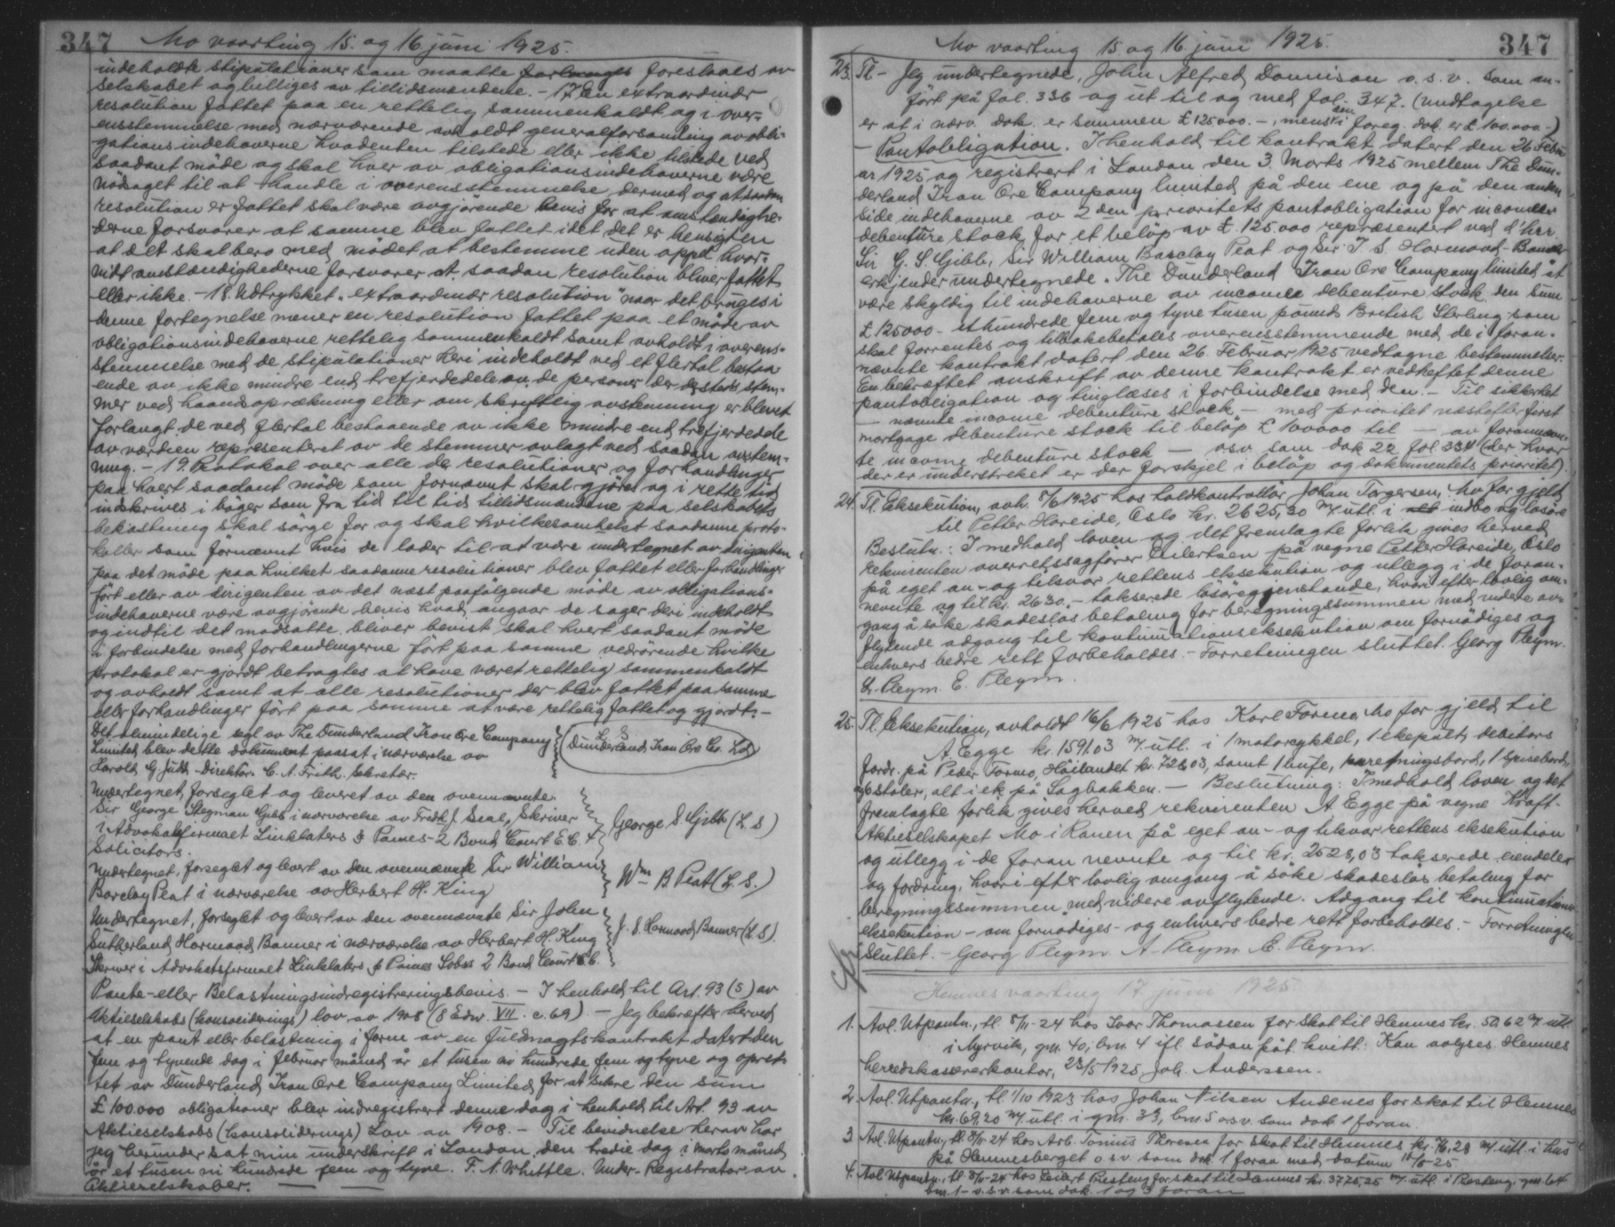 347 Mo vaarting 15. og 16 juni 1925.
indeholdte stipulationer som maatte forlanges foreslaaes av
selskabet og billiges av tillidsmændene. - 17 En extraordinær
resolution fattet paa en rettelig sammenkaldt og i over-
ensstemmelse med nærværende avholdt generalforsamling av obli-
gationsindehaverne hvadenten tilstede eller ikke tilstede ved
saadant möde og skal hver av obligationsindehaverne være
nödsaget til at handle i overensstemmelse dermed og at saadan
resolution er fattet skal være avgjörende bevis for at omstændighe-
derne forsvarer at samme blev fattet idet det er hensigten
at det skal bero med mödet at bestemme uden appel hvor-
vidt omstændighederne forsvarer at saadan resolution bliver fattet
eller ikke. - 18. Udtrykket "extraordinær resolution" naar det bruges i
denne fortegnelse mener en resolution fattet paa et möde av
obligationsindehaverne rettelig sammenkaldt samt avholdt i overens-
stemmelse med de stipulationer heri indeholdt ved et flertal bestaa-
ende av ikke mindre end trefjerdedele av de personer der stem-
mer ved haandsoprækning eller om skriftlig avstemning er blevet
forlangt da ved flertal bestaaende av ikke mindre end trefjerdedele
av værdien representeret av de stemmer avlagt ved saadan avstem-
ning. - 19. Protokol over alle de resolutioner og forhandlinger
paa hvert saadant möde som fornævnt skal gjöres og i rette tid
indskrives i böger som fra tid til tid tillidsmændene paa selskabets
bekostning skal sörge for og skal hvilkesomhelst saadanne proto-
koller som förnævnt hvis de lader til at være undertegnet av dirigenten
paa det möde paa hvilket saadanne resolutioner blev fattet eller forhandlinger
fört eller av dirigenten av det næst paafölgende möde av obligations-
indehaverne være avgjörende bevis hvad angaar de sager deri indeholdt
og indtil det modsatte bliver bevist skal hvert saadant möde
i forbindelse med forhandlingerne fört paa samme vedrörende hvilke
protokol er gjordt betragtes at have været rettelig sammenkaldt
og avholdt samt at alle resolutioner der blev fattet paa samme
eller forhandlinger fört paa samme at være rettelig fattet og gjordt. -
Det almindelige segl av The Dunderland Iron Ore Company
Limited blev dette dokument paasat i nærværelse av
Harold G Judd - Direktör. C. A. Frith. Sekretær.
L S
Dunderland Iron Ore Co. Ltd
Undertegnet, forseglet og leveret av den ovennævnte
Sir George Stegman Gibb i nærværelse av Fredk J. Seal, Skriver
i Advokatfirmaet Linklaters & Paines - 2 Bond Court E.C. 4
Solicitors.
George S. Gibb (L. S)
Undertegnet, forseglet og levert av den ovennævnte Sir William
Barclay Peat i nærværelse av Herbert H. King
Wm B Peat (L. S.)
Undertegnet, forseglet og levert av den ovennævnte Sir John
Sutherland Harmood Banner i nærværelse av Herbert H. King
Skriver i Advokatfirmaet Linklaters & Paines Solrs 2 Bond Court E.C.
J. S. Harmood Banner (L. S).
Pante- eller Belastningsindregistreringsbevis. - I henhold til Art. 93 (5) av
Aktieselskabs (konsoliderings) lov av 1908 (8 Edw. VII. c. 69) - Jeg bekræfter herved
at en pant eller belastning i form av en fuldmagtskontrakt datert den
fem og tyvende dag i februar måned år et tusen ni hundrede fem og tyve og opret-
tet av Dunderland Iron Ore Company Limited for at sikre den sum
£ 100.000 obligationer blev indregistrert denne dag i henhold til Art. 93 av
Aktieselskabs (konsoliderings) Lov av 1908. - Til bevidnelse herav har
jeg herunder sat min underskrift i London, den tredie dag i marts måned
år et tusen ni hundrede fem og tyve. F. A. Whittle. Under-Registrator av
Aktieselskaber.
Mo vaarting 15 og 16 juni 1925. 347
23. Tl - Jeg undertegnede, John Alfred Dannison o. s. v. som an-
fört på fol. 336 og ut til og med fol. 347. (undtagelse
er at i nærv. dok. er summen £ 125000. -, mens i foreg. dok. er £ 100.000 -)
- Pantobligation. I henhold til kontrakt datert den 26 Febru
ar 1925 og registrert i London den 3 Marts 1925 mellem The Dun-
derland Iron Ore Company limited på den ene og på den anden
side indehaverne av 2den prioritets pantobligation for income
debenture stock for et beløp av £ 125,000 repræsentert ved d'hrr
Sir G. S. Gibb, Sir William Barclay Peat og Sir J. S. Harmood-Banner
erkjender undertegnede "The Dunderland Iron Ore Company limited" at
være skyldig til indehaverne av income debenture stock den sum
£ 125000 - ethundrede fem og tyve tusen pounds British Sterling som
skal forrentes og tilbakebetales overensstemmende med de i foran-
nævnte kontrakt datert den 26 Februar 1925 vedtagne bestemmelser.
En bekræftet avskrift av denne kontrakt er vedheftet denne
pantobligation og tinglæses i forbindelse med den. - Til sikkerhet
- nævnte income debenture stock - med prioritet næstefter first
mortgage debenture stock til beløp £ 100000 til - av forannævn-
te income debenture stock - osv som dok 22 fol 334 (der hvor
der er understreket er der forskjel i beløp og dokumentets prioritet)
24. Tl. Eksekution, avh. 5/6 1925 hos Johan Torgersen, Mo for gjeld
til Petter Hareide, Oslo kr. 2625,30 m/ utl. i indbo og løsöre
Beslutn.: I medhold loven og det fremlagte forlik gives herved
rekvirenten overretssagförer Eilertsen på vegne Petter Hareide, Oslo
på eget an- og tilsvar rettens eksekution og utlegg i de foran-
nevnte og til kr. 2630,- takserede løsöregjenstande, hvori efter lovlig om-
gang å søke skadeslös betaling for beregningssummen med videre av-
flytende adgang til kontinuationseksekution om fornödiges og
enhvers bedre rett forbeholdes. - Forretningen sluttet. Georg Pleym.
A. Pleym E. Pleym.
25. Tl. Eksekution, avholdt 16/6 1925 hos Karl Formo, Mo for gjeld til
A Egge kr. 1591.03 m/ utl. i 1 motorcykkel, 1 debitors
fordr. på Peder Formo, Höilandet kr. 728,03, samt 1 1 spisebord,
6 stoler, alt i ek på Sagbakken. - Beslutning: I medhold loven og det
fremlagte forlik gives herved rekvirenten A Egge på vegne Kraft-
Aktieselskapet Mo i Ranen på eget an- og tilsvar rettens eksekution
og utlegg i de foran nevnte og til kr. 2528,03 takserede eiendeler
og fordring, hvori efter lovlig omgang å söke skadeslös betaling for
beregningssummen med videre avflytende. Adgang til kontinuations-
eksekution - om fornødiges - og enhvers bedre rett forbeholdes. - Forretningen
sluttet. - Georg Pleym A. Pleym E. Pleym
Hemnes vaarting 17 juni 1925.
1. Avl. Utpantn., tl 8/11-24 hos Ivar Thomassen for skat til Hemnes kr. 50,62 m/ utl
i Nyrvik, gnr 40, bnr. 4 ifl sådan påt. kvitt: Kan avlyses. Hemnes
herredskassererkontor, 23/5 1925 Joh. Anderssen.
2. Avl. Utpantn., tl 1/10 1923 hos Johan Nilsen Andenes for skat til Hemnes
kr. 69,20 m/ utl. i gnr. 33, bnr 5 osv. som dok 1 foran.
3. Avl. Utpantn., tl. 8/11-24 hos Arb. Tonius Thoresen for skat til Hemnes kr. 76,28 m/ utl. i hus
på Hemnesberget o s v. som dok 1 foran med datum
4. Avl. Utpantn., tl. 8/11-24 hos Presteng for skat til Hemnes kr. 3775,25 m/ utl. i Presteng, gnr 64
bnr. 1 - o.s.v. som dok 1 og 3 foran